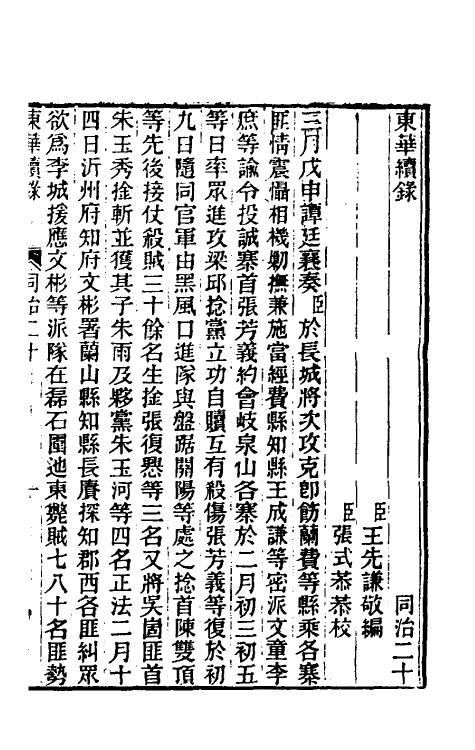 東華續錄　同治二十
臣王先謙敬編
臣張式恭恭校
三月戊申譚廷襄奏臣於長城將次攻克卽飭蘭費等縣乘各寨
匪情震懾相機勦撫兼施當經費縣知縣王成謙等密派文童李
庶等諭令投誠寨首張芳義約會岐泉山各寨於二月初三初五
等日率眾進攻梁邱捻黨立功自贖互有殺傷張芳義等復於初
九日隨同官軍由黑風口進隊與盤踞開陽等處之捻首陳雙頂
等先後接仗殺賊三十餘名生捦張復懃等三名又將吳崮匪首
朱玉秀捦斬並獲其子朱雨及夥黨朱玉河等四名正法二月十
四日沂州府知府文彬署蘭山縣知縣長賡探知郡西各匪糾眾
欲爲李城援應文彬等派隊在磊石圍迆東斃賊七八十名匪勢
東華續錄　同治二十　一